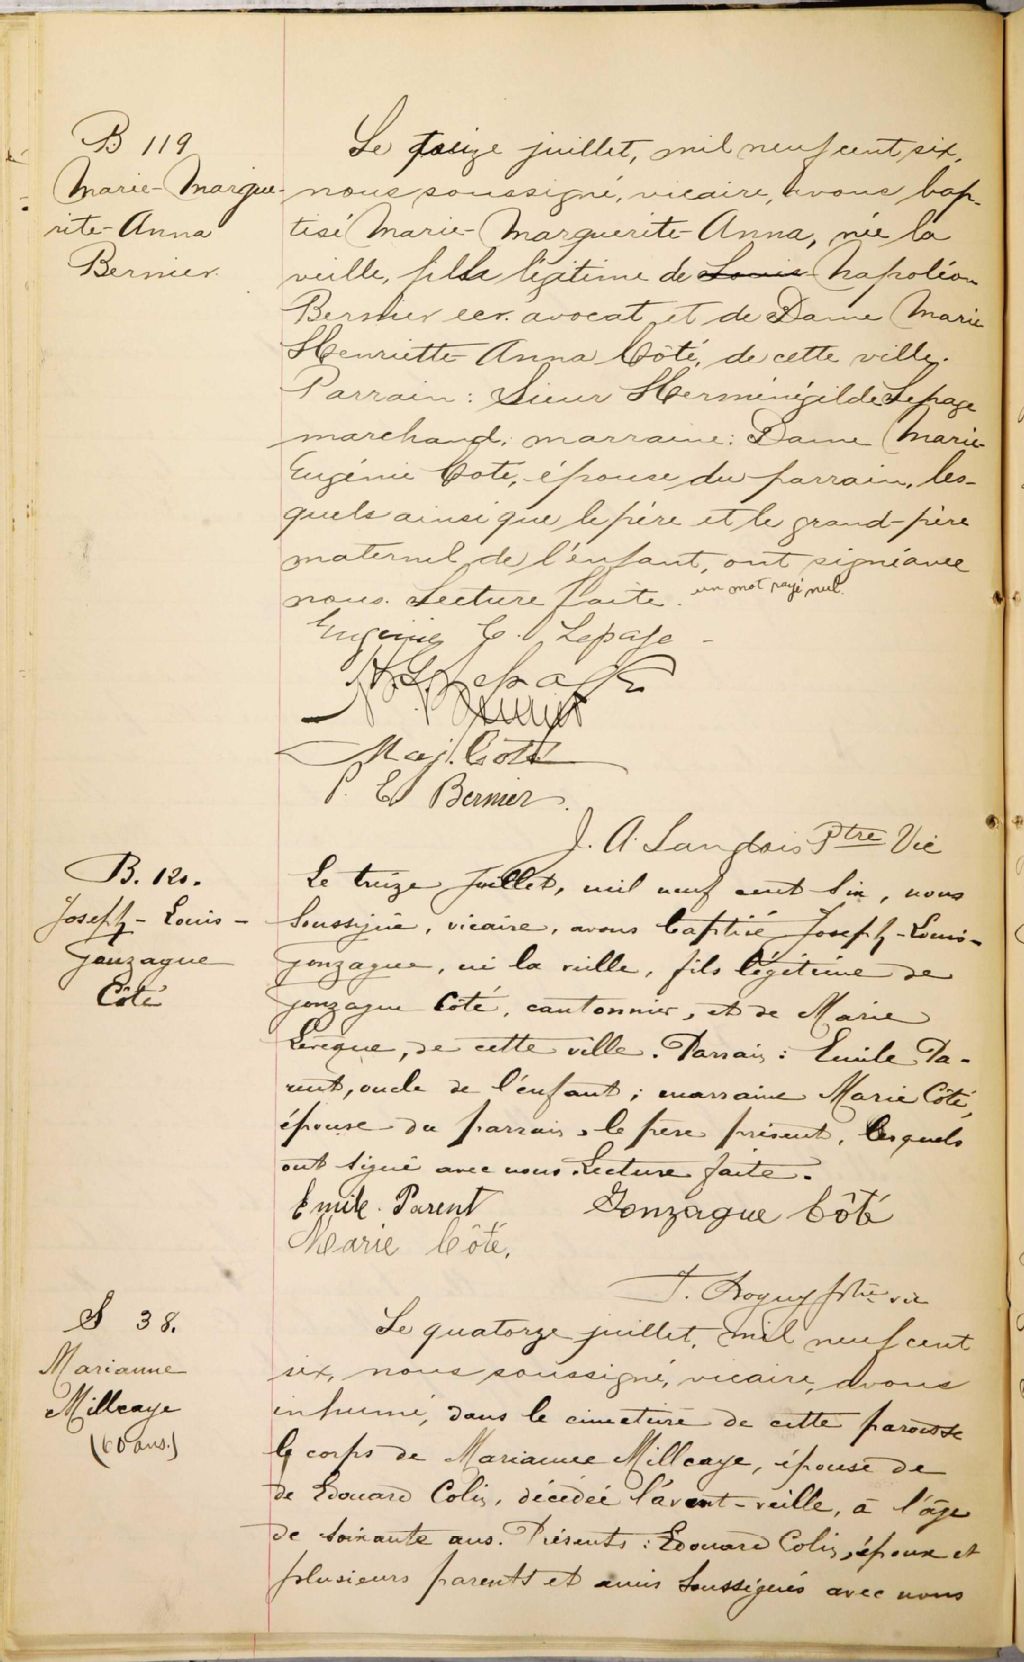 B 119
Marie-Margue-
rite-Anna
Bernier
Le treize juillet, mil neuf cent six,
nous soussigné, vicaire, avons bap-
tisé Marie-Marguerite-Anna, née la
veille, fille légitime de Louis Napoléon
Bernier ecr. avocat et de Dame Marie
Henriette-Anna Côté, de cette ville.
Parrain: Sieur Herménégilde Lepage
marchand, marraine: Dame Marie
Eugénie Cote, épouse du parrain, les-
quels ainsi que le père et le grand-père
maternel de l'enfant, ont signé avec
nous. Lecture faite. un mot rayé nul.
Eugénie C. Lepage
H. G. Lepage
N. Bernier
Maj. Côté
P. E. Bernier.
J. A. Langlois Ptre Vic
B. 120.
Joseph-Louis-
Gonzague
Côté
Le treize juillet, mil neuf cent six, nous
soussigné, vicaire, avons baptisé Joseph-Louis-
Gonzague, né la veille, fils légitime de
Gonzague Côté, cantonnier, et de Marie
Lévêque, de cette ville. Parrain: Emile Pa-
rent, oncle de l'enfant; marraine Marie Côté,
épouse du parrain, le père présent, lesquels
ont signé avec nous. Lecture faite.
Emile Parent Gonzague Côté
Marie Côté.
ptre vic
S 38.
Marianne
Millcaye
(60 ans.)
Le quatorze juillet, mil neuf cent
six, nous soussigné, vicaire, avons
inhumé, dans le cimetière de cette paroisse
le corps de Marianne Millcaye, épouse de
de Edouard Colin, décédée l'avant-veille, à l'âge
de soixante ans. Présents: Edouard Colin, époux et
plusieurs parents et amis soussignés avec nous